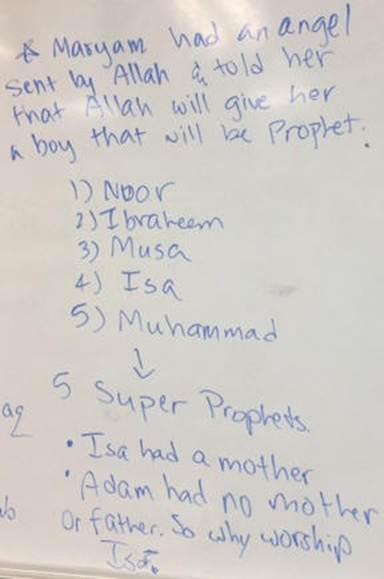 * Maryam had an angel
sent by Allah & told her
that Allah will give her
a boy that will be Prophet.
1) Noor
2) Ibraheem
3) Musa
4) Isa
5) Muhammad
↓
5 Super Prophets.
aq
• Isa had a mother
• Adam had no mother
or father. So why worship
Isa?